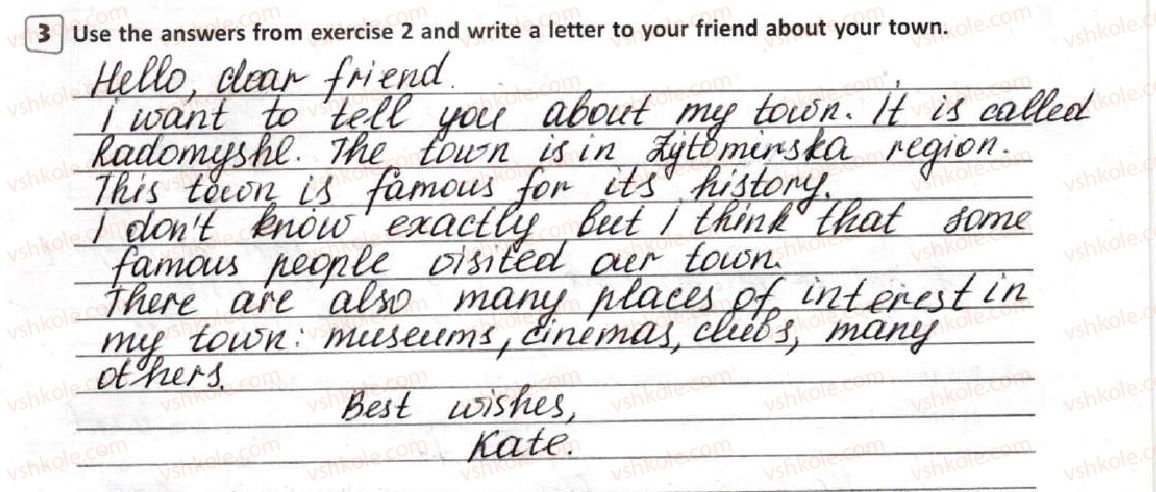 3 Use the answers from exercise 2 and write a letter to your friend about your town.
Hello, dear friend.
I want to tell you about my town. It is called
Radomyshl. The town is in Zytomirska region.
This town is famous for its history.
I don't know exactly but I think that some
famous people visited our town.
There are also many places of interest in
my town: museums, cinemas, clubs, many
others.
Best wishes,
Kate.
vshkole.com